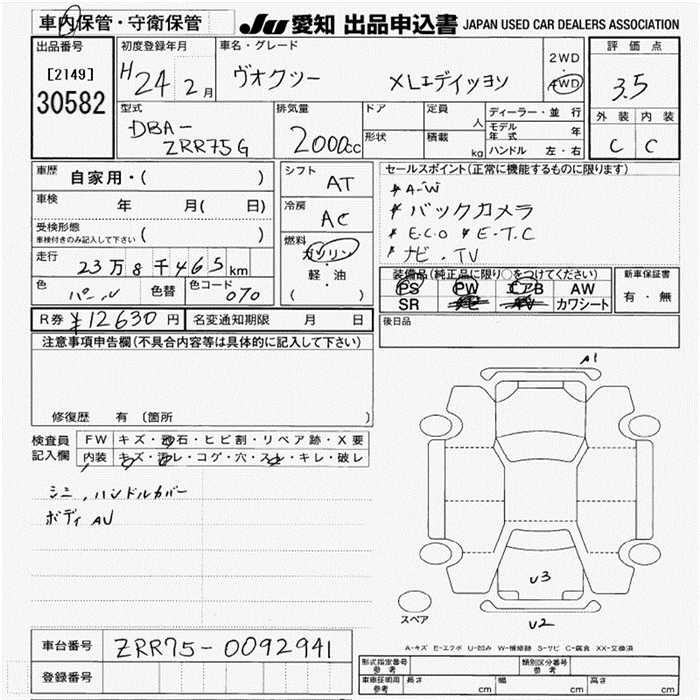 車内保管・守衛保管
JU 愛知 出品申込書 JAPAN USED CAR DEALERS ASSOCIATION
出品番号
[2149]
30582
初度登録年月
H24 2月
車名・グレード
ヴオクシー XLエディッション
2WD
4WD
評価点
3.5
外装 内装
C C
型式
DBA-
ZRR75G
排気量
2000cc
ドア
形状
定員 人
積載 kg
ディーラー・並行
モデル年式 年
ハンドル 左・右
車歴
自家用・( )
車検
年 月( 日)
受検形態
車検付きのみ記入して下さい ( )
走行
23万8千465km
色
パール
色替
色コード
070
シフト
AT
冷房
AC
燃料
ガソリン
・
軽・油
( )
セールスポイント(正常に機能するものに限ります)
* A-W
* バックカメラ
* E.C.O * E.T.C
* ナビ・TV
装備品(純正品に限り○をつけてください)
PS PW エアB AW
SR ナビ TV カワシート
新車保証書
有・無
R券 ¥12630円 名変通知期限 月 日
後日品
注意事項申告欄(不具合内容等は具体的に記入して下さい)
修復歴 有 〔箇所 〕
検査員
記入欄
FW キズ・飛石・ヒビ割・リペア跡・X要
内装 キズ・汚レ・コゲ・穴・スレ・キレ・破レ
シミ、ハンドルカバー
ボディAU
A1
U3
U2
スペア
A-キズ E-エクボ U-凹み W-補修跡 S-サビ C-腐食 XX-交換済
車台番号 ZRR75-0092941
登録番号
形式指定番号
参考
類別区分番号
参考
車庫証明用
参考
長さ cm 幅 cm 高さ cm